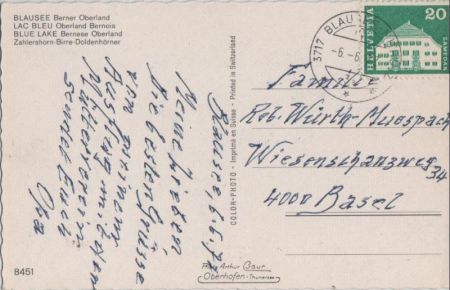 BLAUSEE Berner Oberland
LAC BLEU Oberland Bernois
BLUE LAKE Bernese Oberland
Zahlershorn-Birre-Doldenhörner
Blausee, 6.6.
Meine Lieben,
die besten Grüsse
vom
Ausflug mit dem
sendet Euch
Opa
8451
COLOR-PHOTO - Imprimé en Suisse - Printed in Switzerland
Photo Arthur Baur
Oberhofen-Thunersee
3717 BLAUSEE
-6.-6.
HELVETIA
20
SAMEDAN
Familie
Rob. Würth-Muespach
Wiesenschanzweg 34
4000 Basel